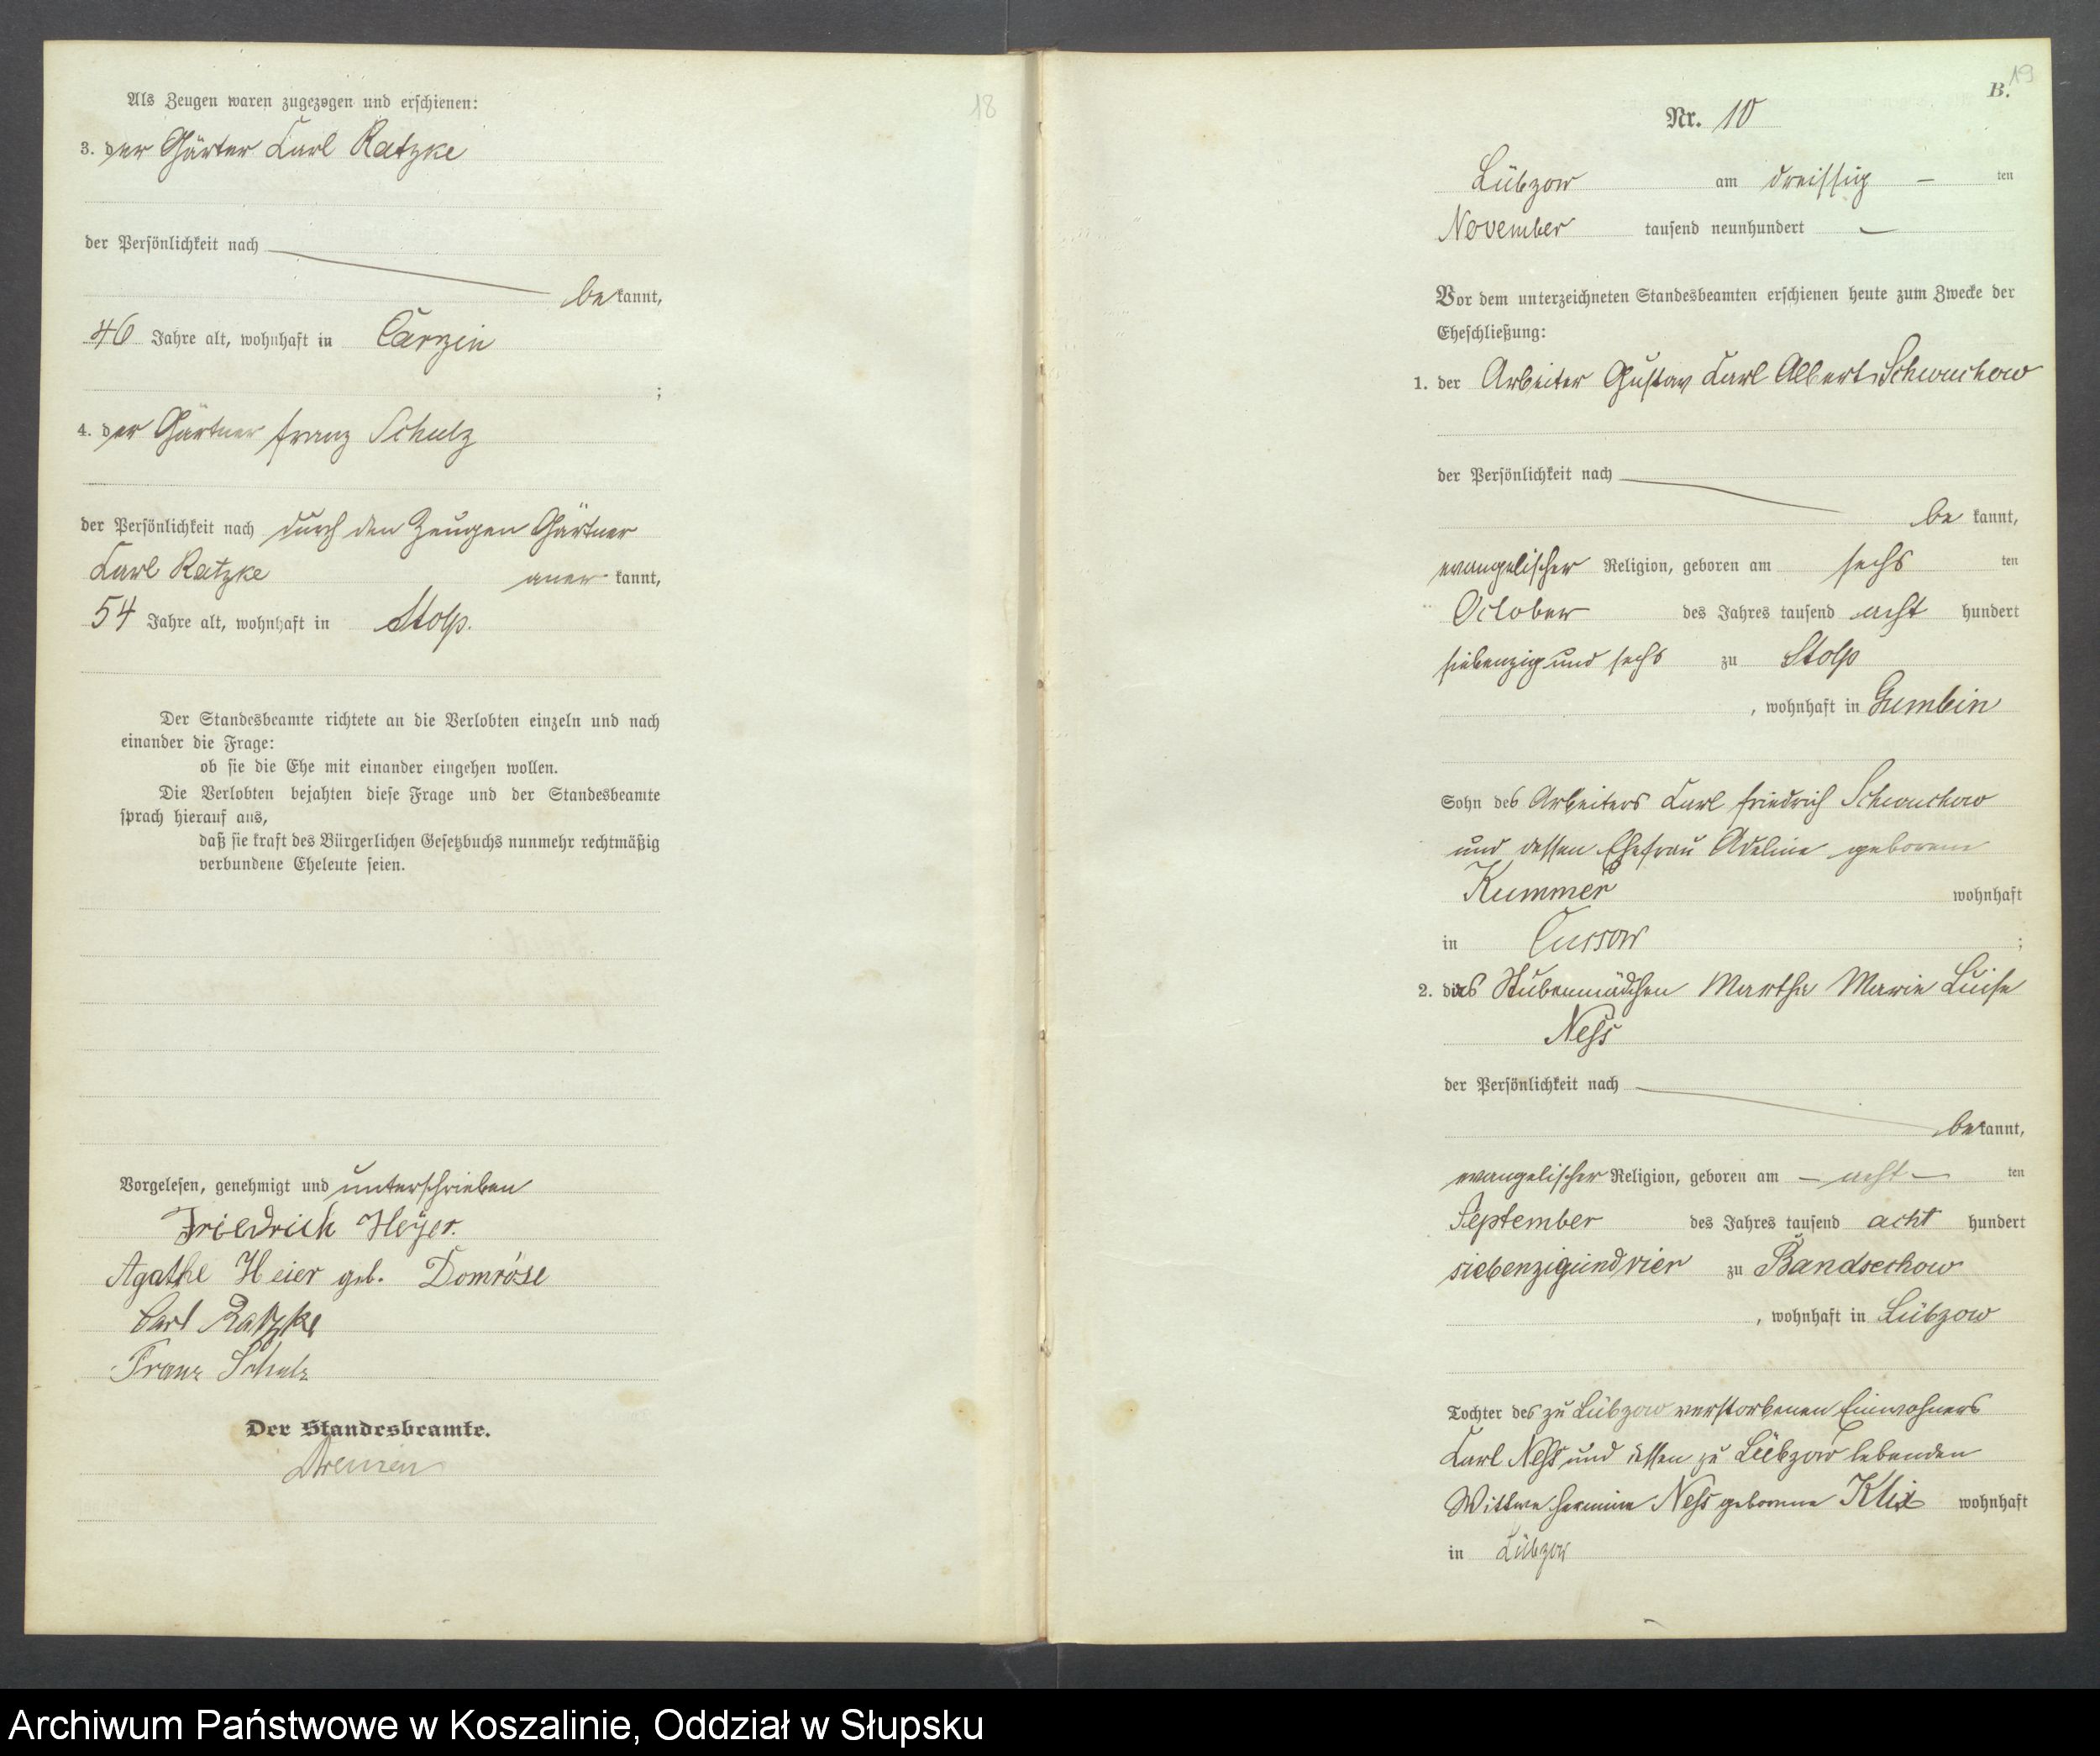 Als Zeugen waren zugezogen und erschienen:
3. der Gärter Carl Ratzke
der Persönlichkeit nach
bekannt,
46 Jahre alt, wohnhaft in Carzin
;
4. der Gärtner Franz Schulz
der Persönlichkeit nach durch den Zeugen Gärtner
Carl Ratzke anerkannt,
54 Jahre alt, wohnhaft in Stolp.
Der Standesbeamte richtete an die Verlobten einzeln und nach
einander die Frage:
ob sie die Ehe mit einander eingehen wollen.
Die Verlobten bejahten diese Frage und der Standesbeamte
sprach hierauf aus,
daß sie kraft des Bürgerlichen Gesetzbuchs nunmehr rechtmäßig
verbundene Eheleute seien.
Vorgelesen, genehmigt und unterschrieben
Friedrich Heyer.
Agathe Heier geb. Domröse
Carl Ratzke
Franz Schulz
Der Standesbeamte.
18
19
B.
Nr. 10
Lübzow am dreissig – ten
November tausend neunhundert –
Vor dem unterzeichneten Standesbeamten erschienen heute zum Zwecke der
Eheschließung:
1. der Arbeiter Gustav Carl Albert Schwuchow
der Persönlichkeit nach
bekannt,
evangelischer Religion, geboren am sechs ten
October des Jahres tausend acht hundert
siebenzig und sechs zu Stolp
, wohnhaft in Gumbin
Sohn des Arbeiters Carl Friedrich Schwuchow
und dessen Ehefrau Adeline geborene
Kummer wohnhaft
in Cussow ;
2. das Stubenmädchen Martha Marie Luise
Ness
der Persönlichkeit nach
bekannt,
evangelischer Religion, geboren am – acht – ten
September des Jahres tausend acht hundert
siebenzigundvier zu Bandsechow
, wohnhaft in Lübzow
Tochter des zu Lübzow verstorbenen Einwohners
Carl Ness und dessen zu Lübzow lebenden
Wittwe Hermine Ness geborene Klix wohnhaft
in Lübzow
Archiwum Państwowe w Koszalinie, Oddział w Słupsku